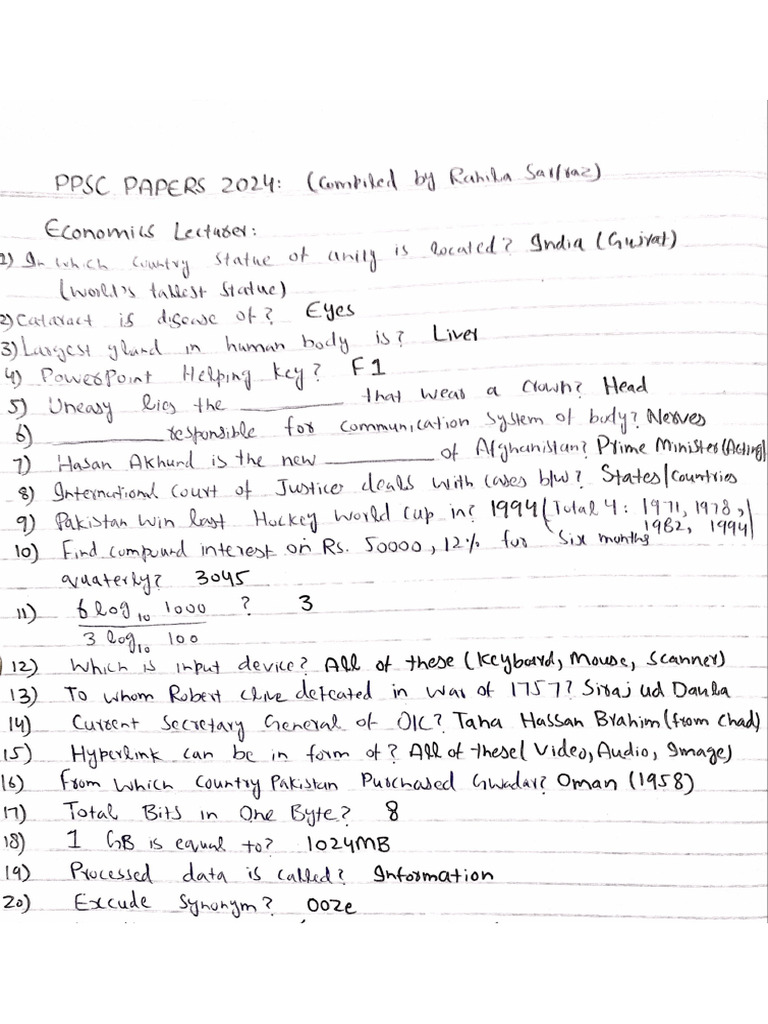 PPSC PAPERS 2024: (Compiled by Rahila Sarfraz)
Economics Lecturer:
1) In which country statue of unity is located? India (Gujrat)
(World's tallest statue)
2) Cataract is disease of? Eyes
3) Largest gland in human body is? Liver
4) PowerPoint Helping key? F1
5) Uneasy lies the ________ that wear a crown? Head
6) ________ responsible for communication system of body? Nerves
7) Hasan Akhund is the new ________ of Afghanistan? Prime Minister (Acting)
8) International Court of Justice deals with cases b/w? States/Countries
9) Pakistan win last Hockey World Cup in? 1994 (Total 4: 1971, 1978, 1982, 1994)
10) Find compound interest on Rs. 50000, 12% for six months
quaterly? 3045
11) 6 log10 1000 ? 3
3 log10 100
12) Which is input device? All of these (Keyboard, Mouse, Scanner)
13) To whom Robert Clive defeated in war of 1757? Siraj ud Daula
14) Current Secretary General of OIC? Taha Hassan Brahim (from Chad)
15) Hyperlink can be in form of? All of these (Video, Audio, Image)
16) From which Country Pakistan Purchased Gwadar? Oman (1958)
17) Total Bits in One Byte? 8
18) 1 GB is equal to? 1024MB
19) Processed data is called? Information
20) Excude Synonym? Ooze